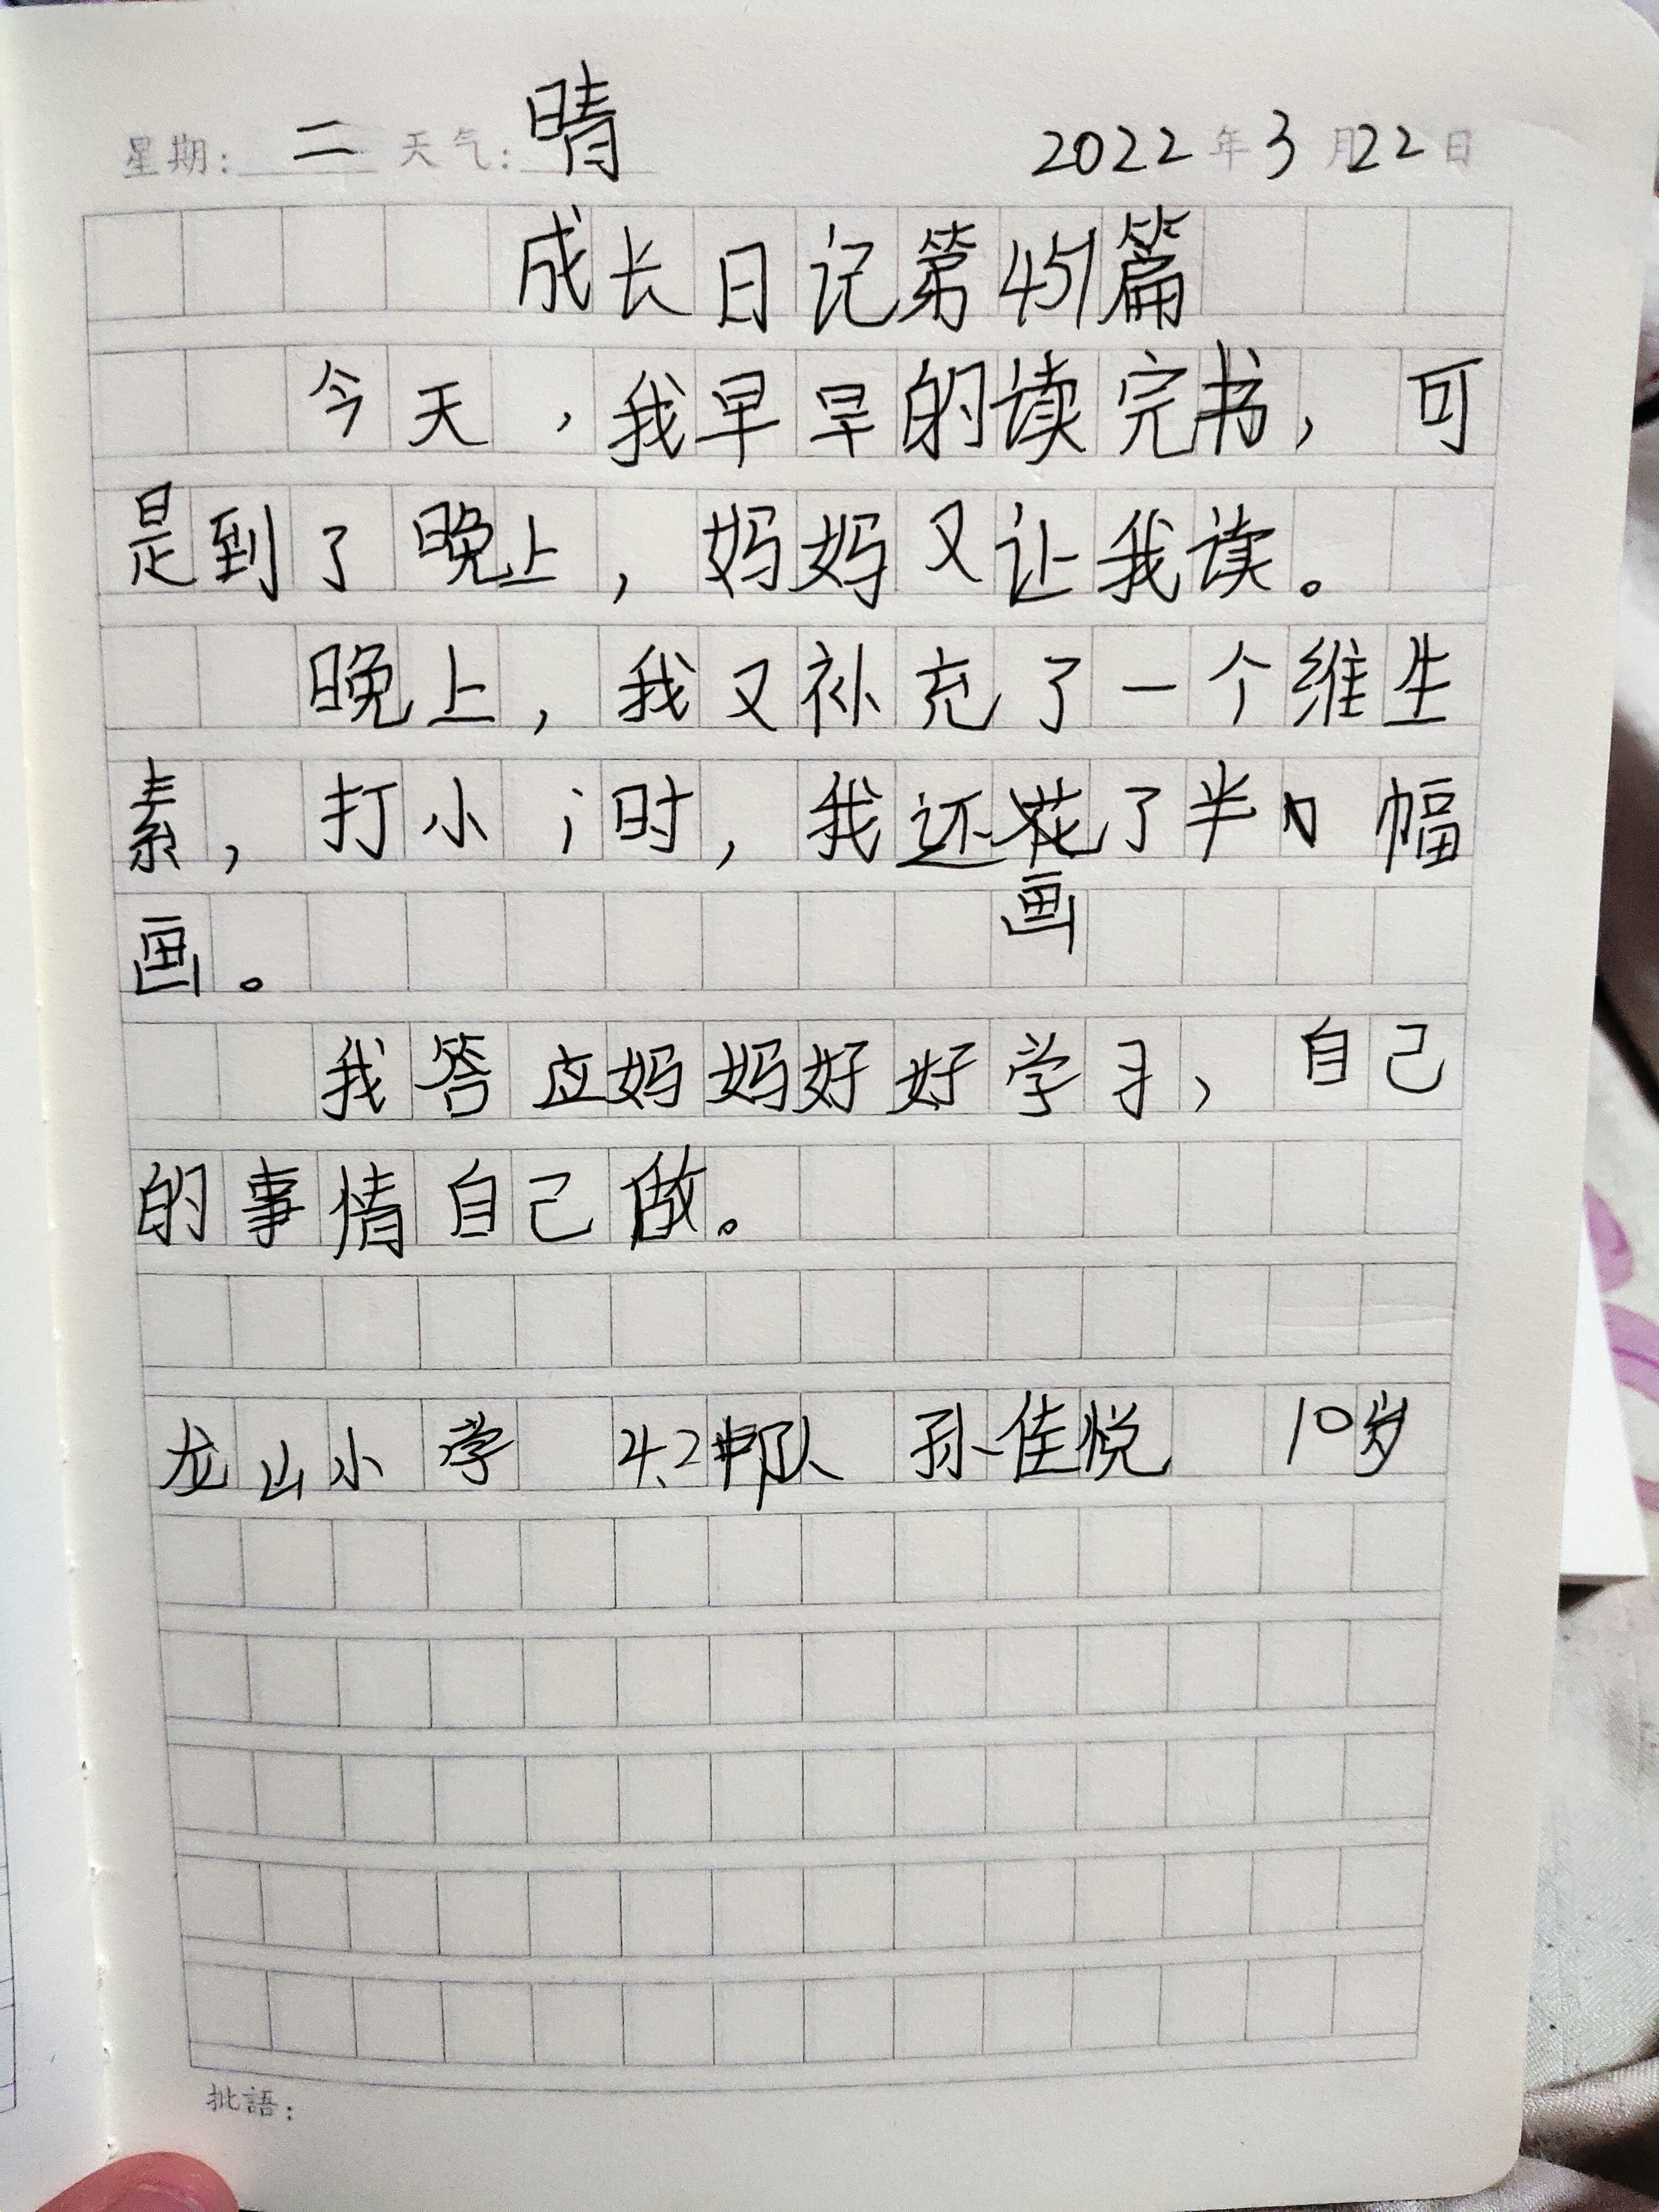 星期: 二 天气: 晴 2022年3月22日
成长日记第451篇
今天,我早早的读完书,可
是到了晚上,妈妈又让我读。
晚上,我又补充了一个维生
素,打小i时,我还画了半幅
画。
我答应妈妈好好学习,自己
的事情自己做。
龙山小学 4.2中队 孙佳悦 10岁
批語: